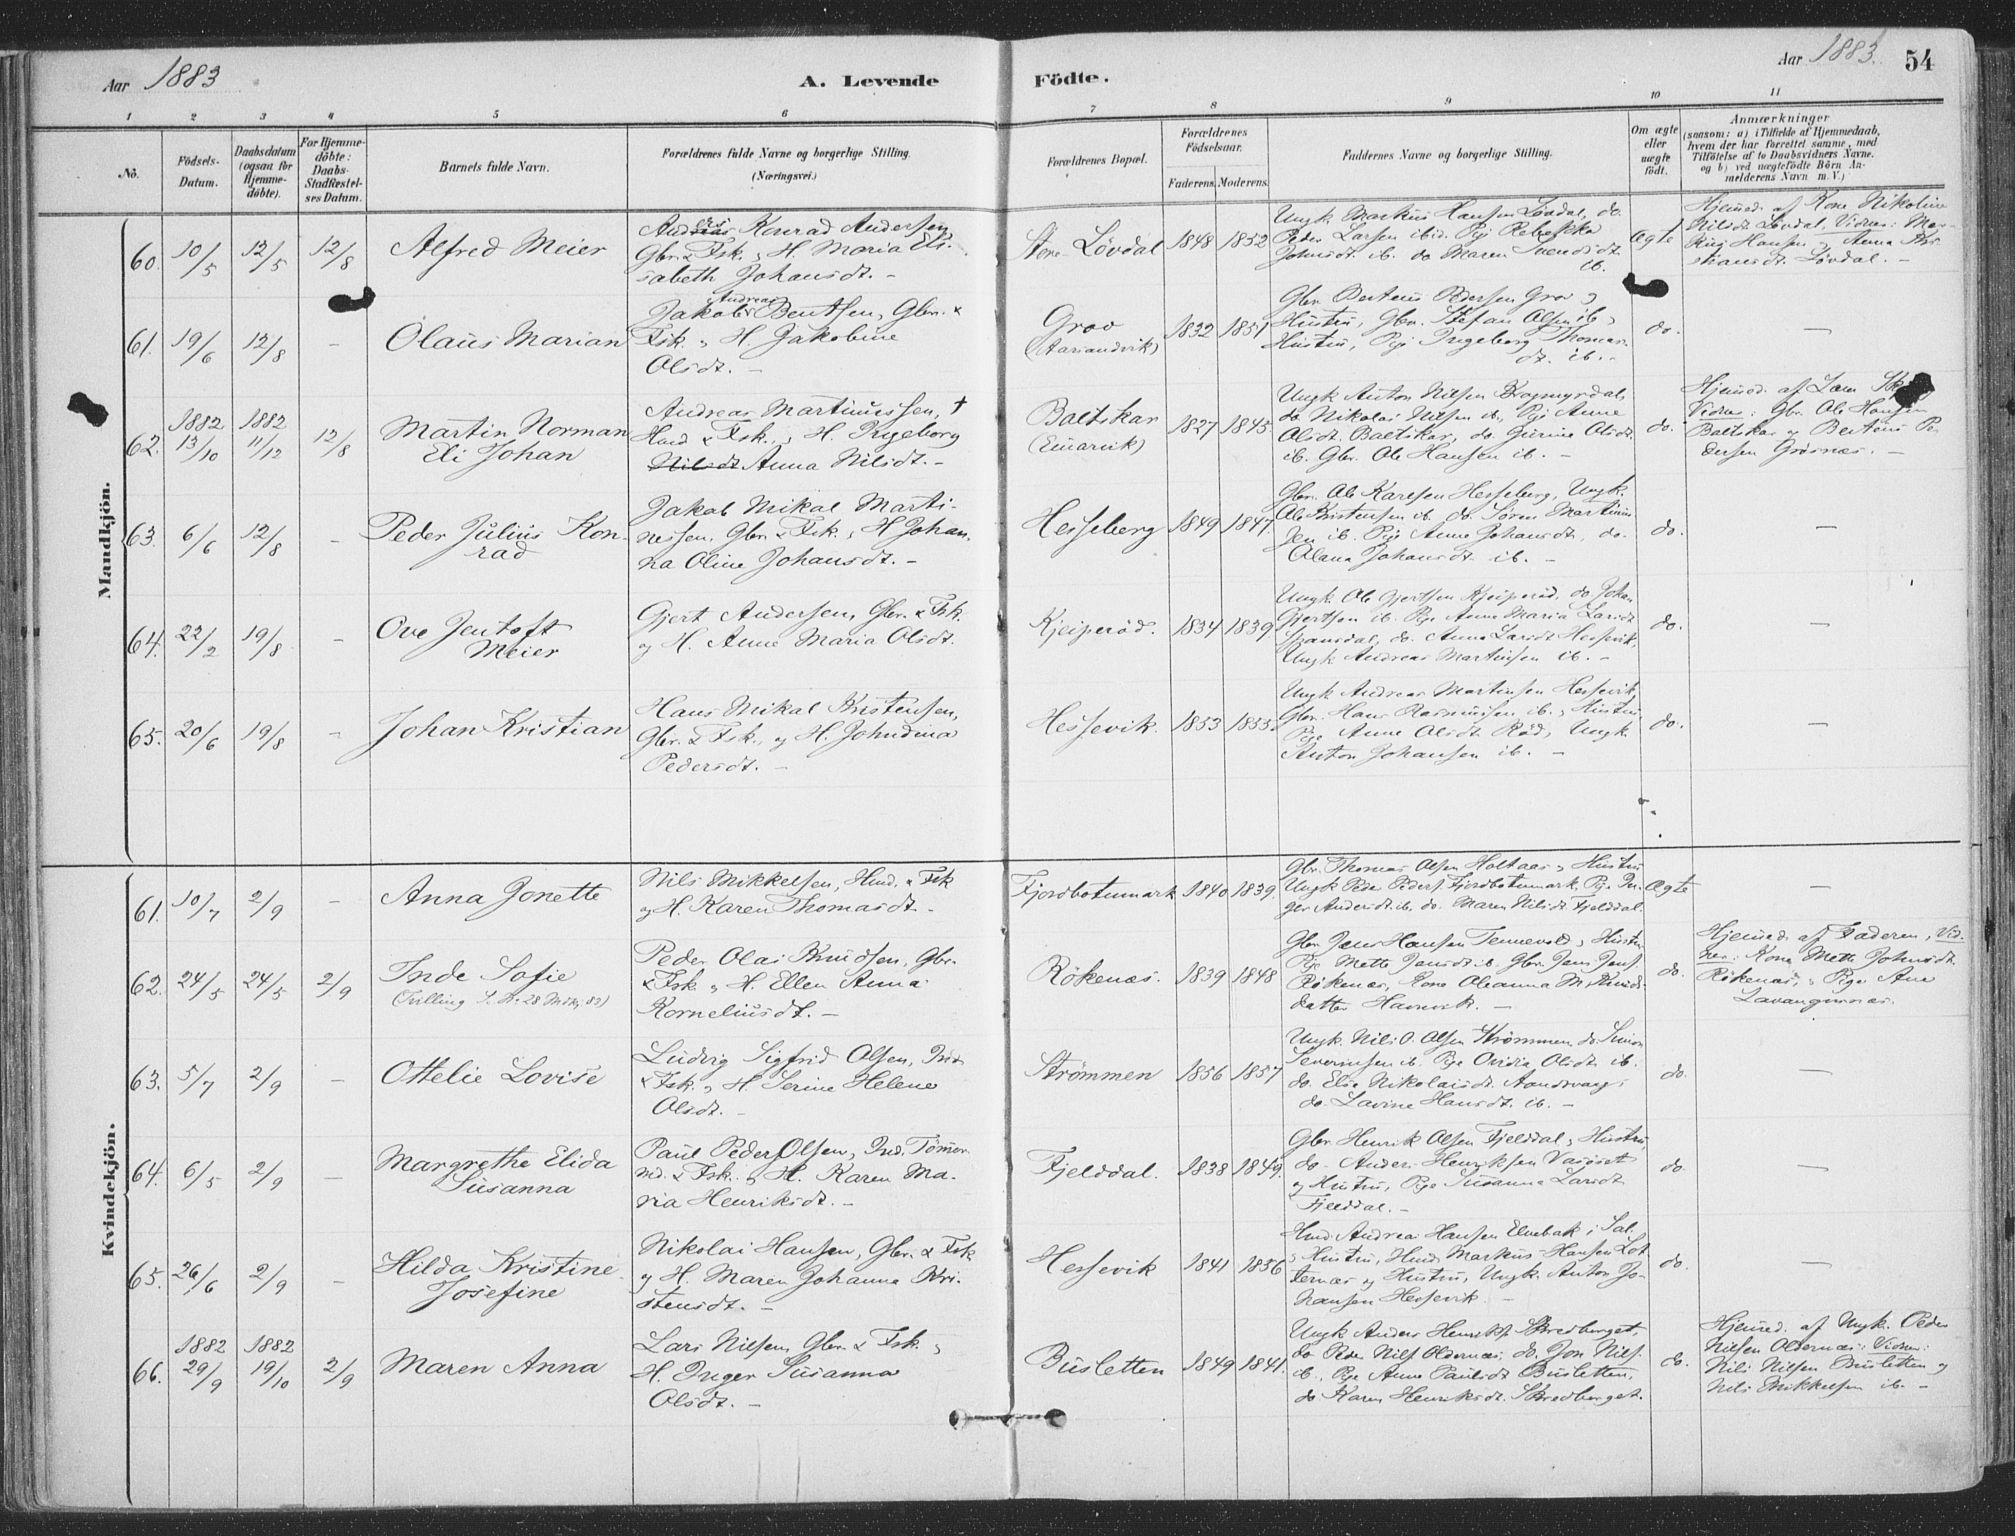 Aar 1883
A. Levende
Födte.
Aar 1883.
54
1 2 3 4 5 6 7 8 9 10 11
No.
Födsels-
Datum.
Daabsdatum
(ogsaa for
Hjemme-
döbte).
For Hjemme-
döbte:
Daabs-
Stadfæstel-
ses Datum.
Barnets fulde Navn.
Forældrenes fulde Navne og borgerlige Stilling.
(Næringsvei.)
Forældrenes Bopæl.
Forældrenes
Födselsaar.
Faderens. Moderens.
Faddernes Navne og borgerlige Stilling.
Om ægte
eller
uægte
födt.
Anmærkninger
(saasom: a) i Tilfælde af Hjemmedaab,
hvem der har forrettet samme, med
Tilföielse af to Daabsvidners Navne.
og b) ved uægtefödte Börn An-
melderens Navn m. V.)
Mandkjön.
60. 10/5 13/5 12/8 Alfred Meier
Konrad Andersen
Gbr. & Fsk. og H. Maria Eli-
sabeth Johansdt. -
Løvdal 1848 1852
Ungk. Markus Hansen Løvdal, do.
Peder Larsen ibid. Pige Rebekka
Johnsdt. ib. do Maren Svendsdt
ib.
Ægte
Hjemmed. af Kone Nikoline
Nilsdt Løvdal, Vidner: Mar-
kus Hansen og Anna
Løvdal. -
61. 19/6 12/8 - Olaus Marian
Jakob Andreas Bentsen, Gbr. &
Fsk. og H. Jakobine
Olsdt. -
Grov
1832 1851
Gbr. Berteus Pedersen Grov og
Hustru, Gbr. Stefan Olsen ib og
Hustru, Pige Ingeborg Thomas-
dt. ib. -
do. -
62. 1882 13/10 1882 11/12 12/8 Martin Norman
Eli Johan
Andreas Martinussen, †
Hmd & Fsk. og H. Ingeborg
Nilsdt Anna Nilsdt. -
Baltskar
1827 1845
Ungk Anton Nilsen
do Nikolai Nilsen ib, Pige Anne
Olsdt. Baltskar, do. Gurine Olsdt.
ib. Gbr. Ole Hansen ib. -
do.
Hjemmed. af
Vidner: Gbr. Ole Hansen
Baltskar og Berteus Pe-
dersen Grøsnes. -
63. 6/6 12/8 - Peder Julius Kon-
rad
Jakob Mikal Marti-
nessen, Gbr. & Fsk. og H Johan-
na Oline Johansdt. -
Hesseberg 1849 1847.
Gbr. Ole Karlsen Hesseberg, Ungk.
Ole Kristensen ib. do. Søren Martinus-
sen ib. Pige Anne Johansdt, do.
Olana Johansdt ib. -
do. -
64. 22/2 19/8 - Ove Jentoft
Meier
Gjert Andersen, Gbr. & Fsk.
og H. Anne Maria Olsdt.
Kjeiperöd. 1834 1839
Ungk. Ole Gjertsen Kjeiperöd. do Johan
Gjertsen ib. Pige Anne Maria Larsdt
Spansdal, do. Anna Larsdt Hessevik,
Ungk Andreas Martinsen ib. -
do. -
65. 20/6 19/8 - Johan Kristian
Hans Mikal Kristensen,
Gbr. & Fsk., og H. Johndina
Pedersdt. -
Hessevik. 1853 1855.
Ungk Andreas Martinsen Hessevik,
Gbr. Hans Rasmussen ib. og Hustru
Pige Anne Olsdt. Röd, Ungk.
Anton Johansen ib. -
do. -
Kvindekjön.
61. 10/7 2/9 - Anna Jonette
Nils Mikkelsen, Hmd. & Fsk
og H. Karen Thomasdt. -
Fjordbotnmark 1840 1839.
Gbr. Thomas Olsen Holtaas og Hustru
Ungk Peder Peders. Fjordbotnmark, Pige In-
ger Andersdt ib, do. Maren Nilsdt Fjelddal.
Ægte -
62. 24/5 24/5 2/9 Inde Sofie
Peder Olai Knudsen, Gbr.
& Fsk og H. Ellen Anna
Korneliusdt. -
Rökenæs. 1839 1848
Gbr Jens Hansen Tennevold og Hustru
Pige Mette Jensdt ib. Gbr. Jens Jens.
Rökenæs, Kone Oleanna M. Knuds-
datter Havnvik. -
do.
Hjemmed. af Faderen, Vid-
ner: Kone Mette Johnsdt.
Rökenæs, og Pige Ane
Lavangsnæs.
63. 5/7 2/9 - Ottelie Lovise
Ludvig Sigfrid Olsen, Ind
& Fsk. og H Serine Helene
Olsdt. -
Strömmen 1856 1857
Ungk. Nils O. Olsen Strömmen do. Simon
Severinsen ib. Pige Ovidia Olsdt ib.
do. Elie Nikolaisdt.
do. Lavine Hansdt. ib. -
do. -
64. 6/5 2/9 - Margrethe Elida
Susanna
Paul Peder Olsen, Ind. Tömmer-
md. & Fsk. og H. Karen Ma-
ria Henriksdt. -
Fjelddal. 1838 1849.
Gbr. Henrik Olsen Fjelddal og Hustru,
do. Anders Henriksen
og Hustru, Pige Susanna Larsdt
Fjelddal. -
do. -
65. 26/6 2/9 - Hilda Kristine
Josefine
Nikolai Hansen, Gbr. & Fsk
og H. Maren Johanna Kri-
stensdt. -
Hessevik 1841 1856
Hmd. Andreas Hansen Elvebak i Sal.
og Hustru, Hmd Markus Hansen Lot-
ternæs og Hustru, Ungk. Anton Jo-
hansen Hessevik. -
do. -
66. 1882 29/9 1882 19/10 2/9 Maren Anna
Lars Nilsen, Gbr. & Fsk. og
H. Inger Susanna
Olsdt. -
Busletten 1849 1841.
Ungk Anders Henriks. Bredberget,
do Peder Nils. do. Jon Nils.
ib, Pige Anne Paulsdt Busletten,
do Karen Henriksdt. Bredberget.
do.
Hjemmed. af Ungk. Peder
Nilsen Vidner:
Nils Nilsen Busletten og
Nils Mikkelsen ib. -